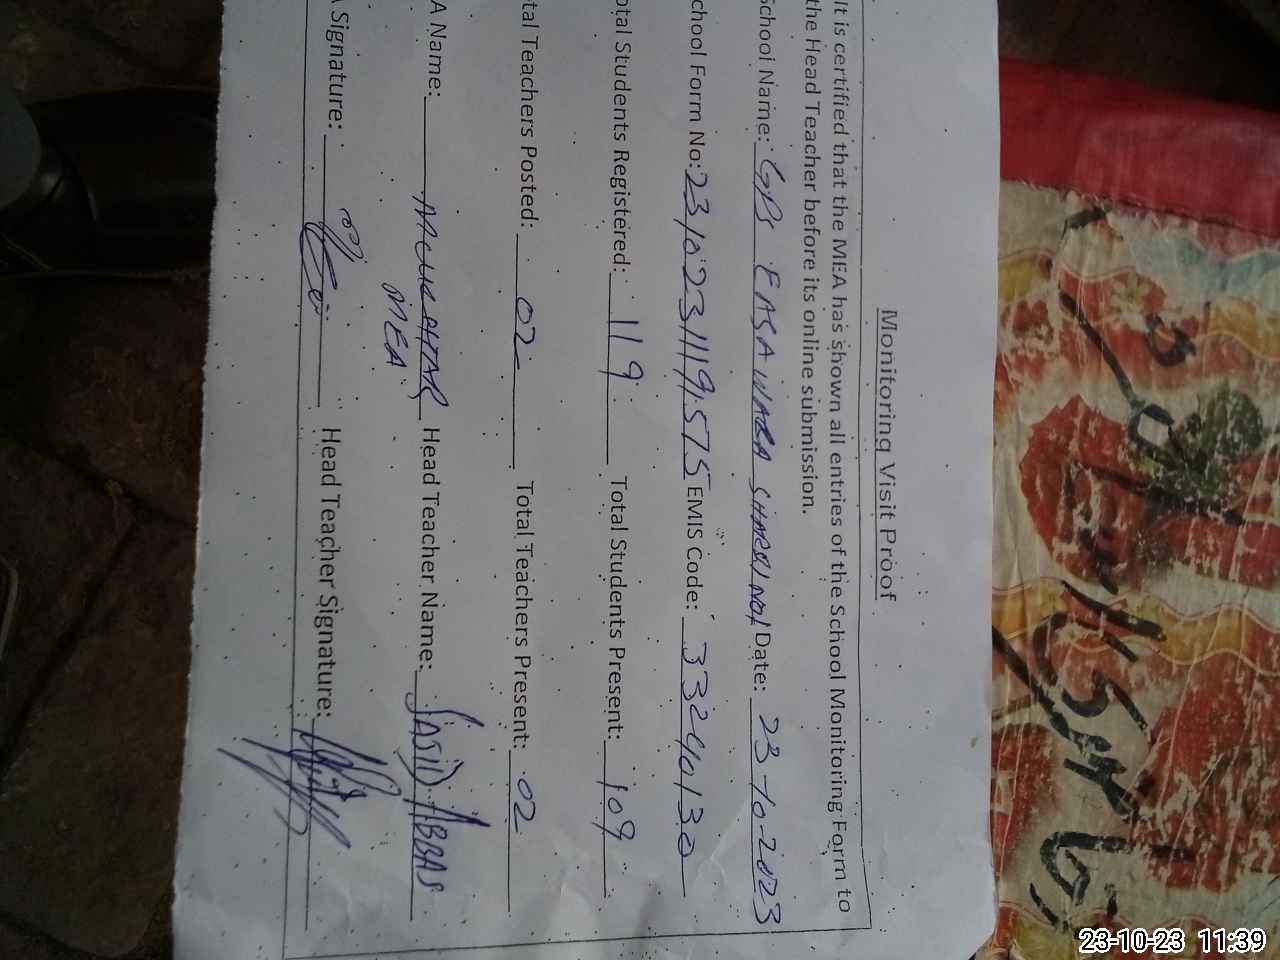 Monitoring Visit Proof
It is certified that the MEA has shown all entries of the School Monitoring Form to
the Head Teacher before its online submission.
School Name: GPS EASA WARA SHARQI NO1 Date: 23-10-2023
chool Form No: 231023119575 EMIS Code: 33240130
otal Students Registered: 119 Total Students Present: 109
tal Teachers Posted: 02 Total Teachers Present: 02
A Name: Head Teacher Name: SAJID ABBAS
MEA
Signature: Head Teacher Signature:
23-10-23 11:39